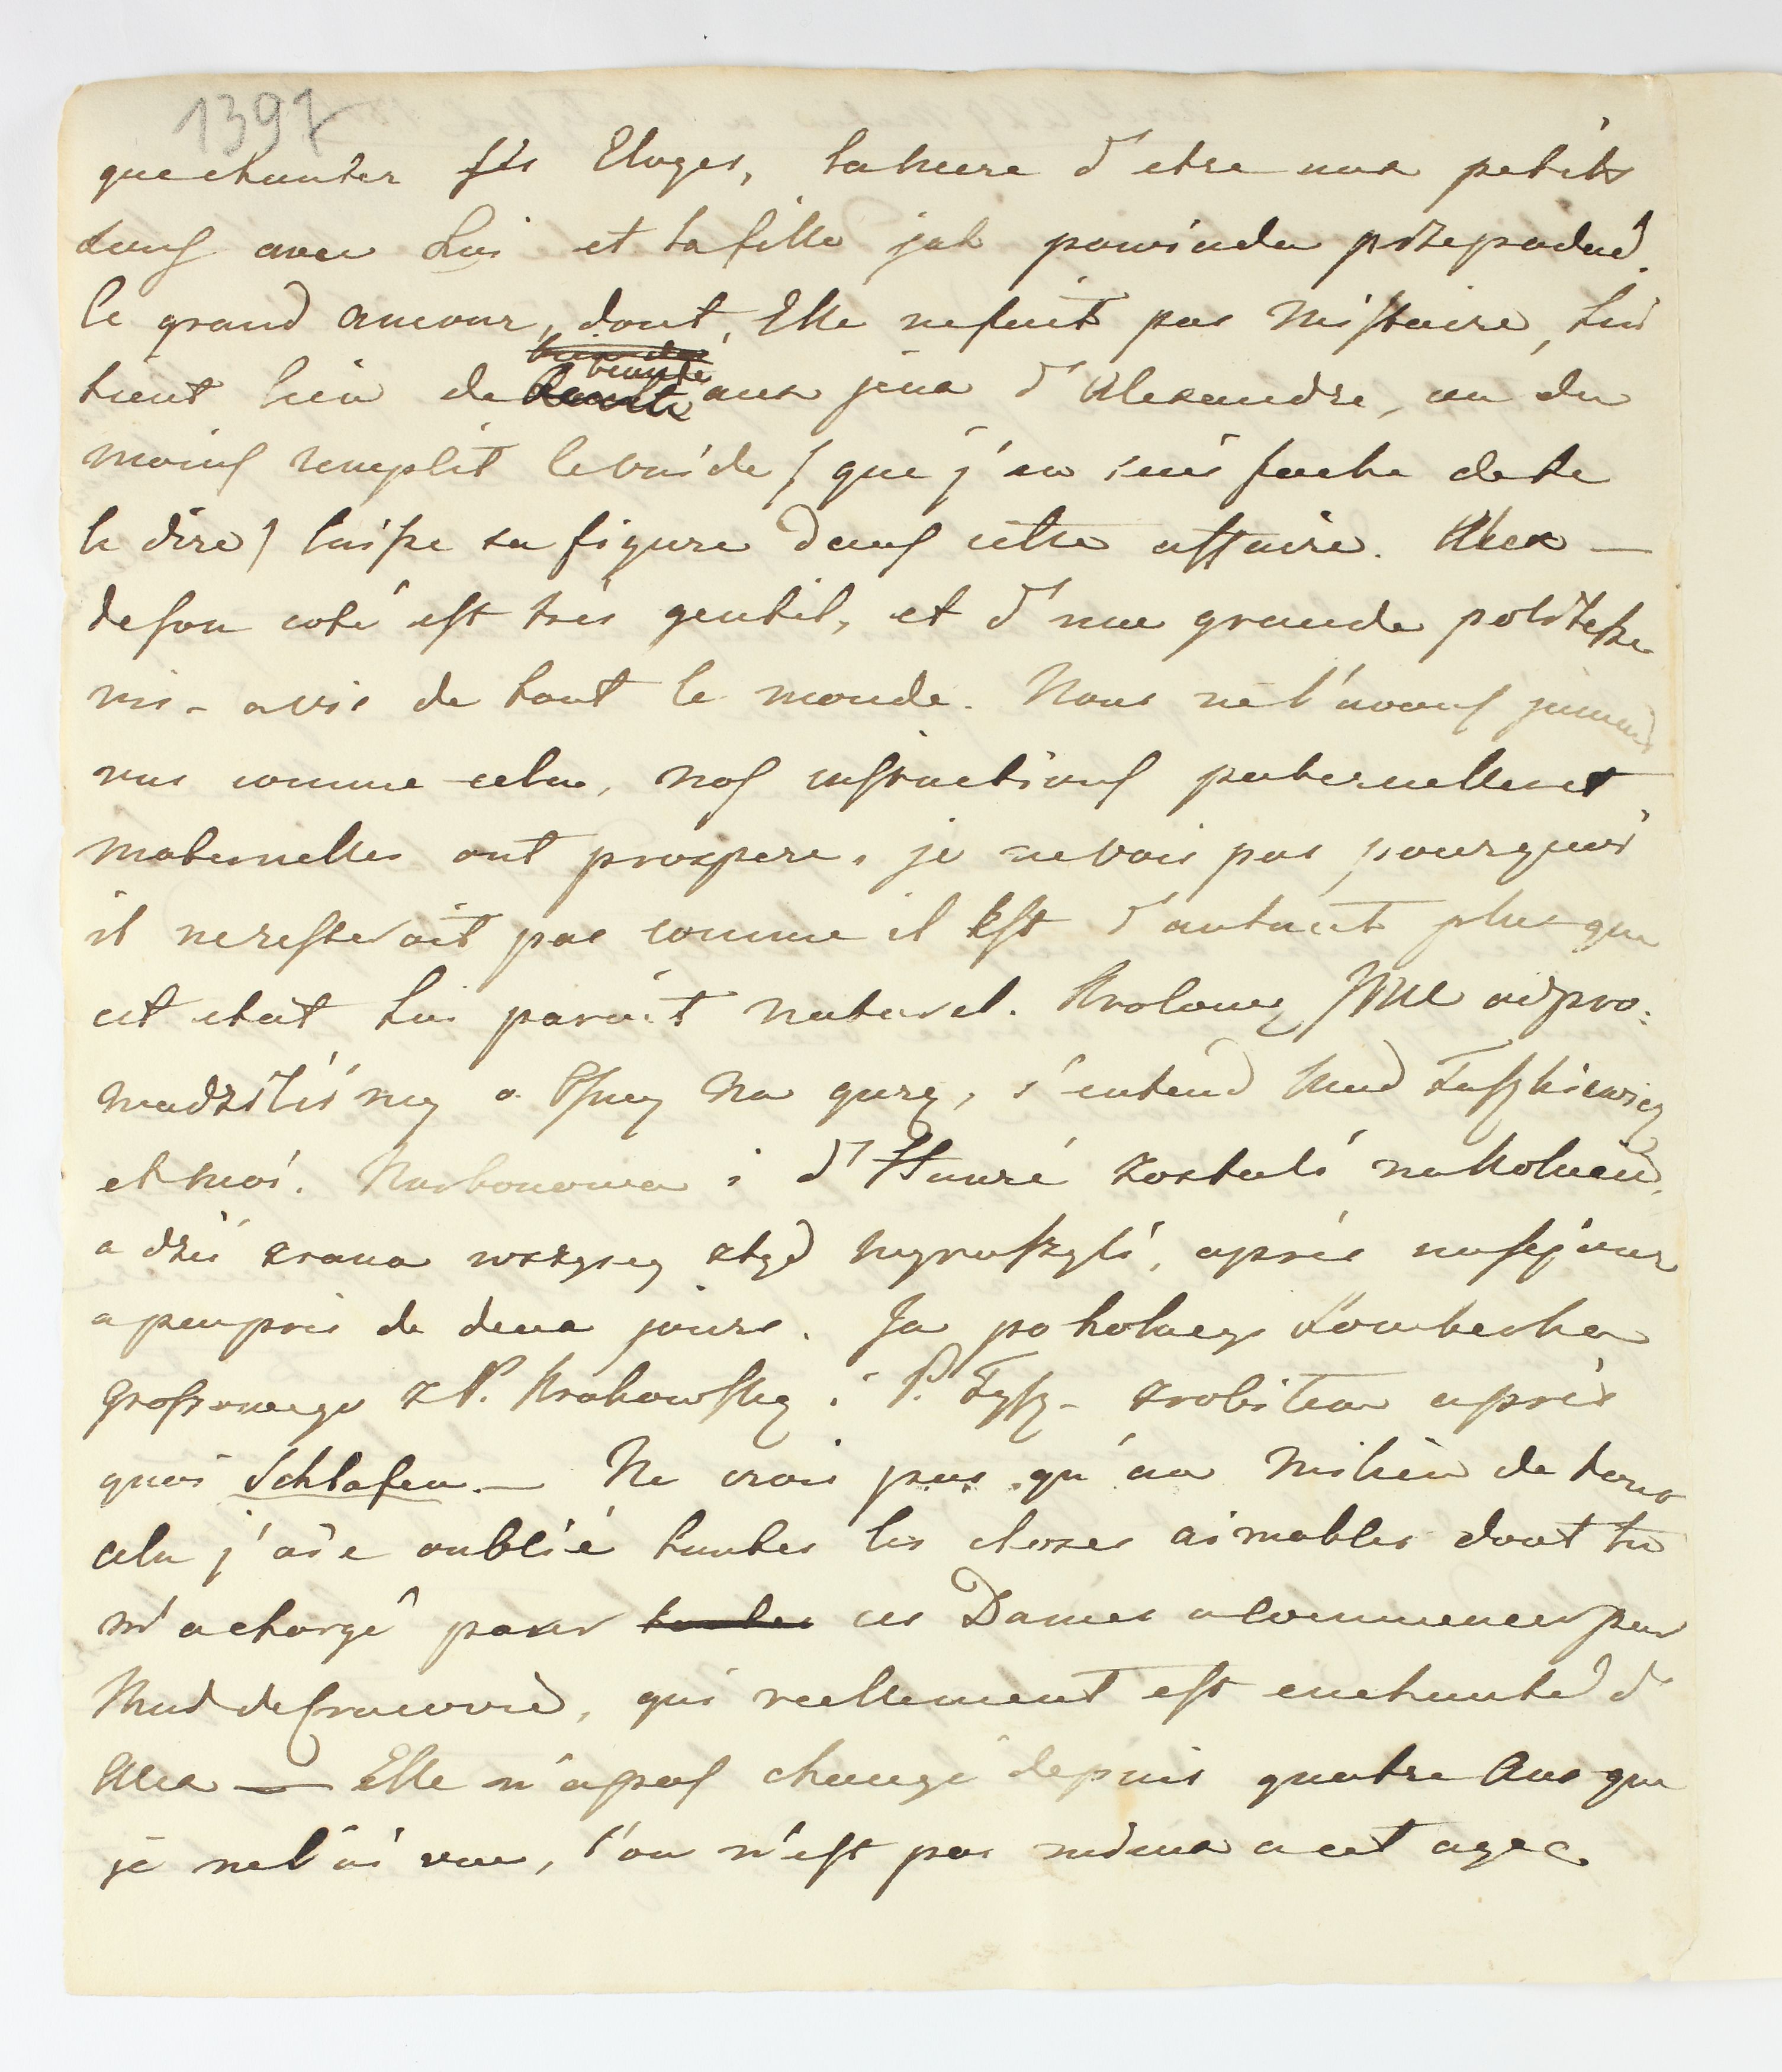 1397
que chanter ses Eloges, la mere d'etre aux petits
soins avec Lui et la fille jak powinda przepadać.
le grand amour, dont, Elle ne fait pas mistaire, lui
tient lieu de beauté aux jeux d'Alexandre, ou du
moins remplit le vuide / que j'en suis fache de te
le dire / laisse sa figure dans cette affaire. Alex —
de son coté est très gentil, et d'une grande politesse
vis-avis de tout le monde. Nous ne l'avons jamais
vus comme cela, nos instructions paternelles et
maternelles ont prospere, je ne vois pas pourquoi
il ne resterait pas comme il Est d'autant plus que
cet etat Lui parait naturel. Krolowę odpro:
wadziliśmy o 8mey na gurę, s'entend Mad Tyszkiewicz
et moi. Narbonowa i d' zostali na kolacii,
a dziś zrana wszyscy ztąd wyruszyli, après un sejour
a peu près de deux jours. Ja po kolacyi Lomberka
groszowego z P. Krakowską i P. Tysz- zrobiłem après
quoi Schlafen. — Ne crois pas qu'au milieu de tout
cela j'aie oublié toutes les choses aimables dont tu
m'a chargé pour toutes ces Dames a commencer par
Mad de Cracovie, qui reellement est enchanté d'
Alex — Elle n'a pas changé depuis quatre Ans que
je ne l'ai vue, l'on n'est pas mieux a cet agee